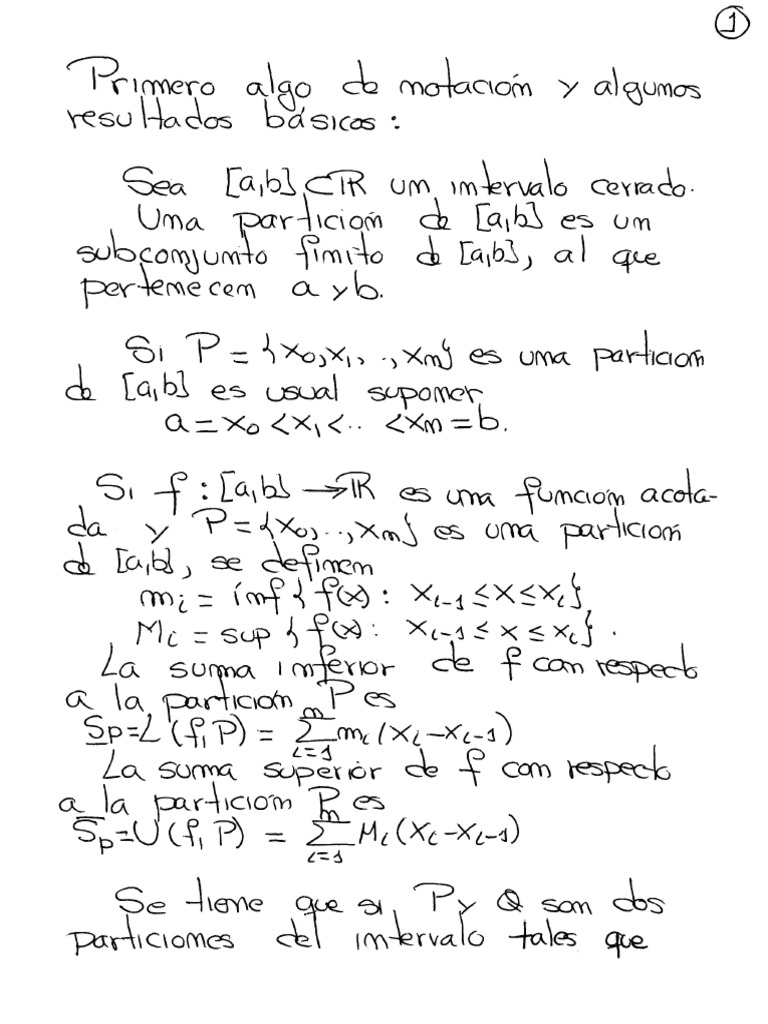 ①
Primero algo de notación y algunos
resultados básicos:
Sea [a,b] ⊂ ℝ un intervalo cerrado.
Una partición de [a,b] es un
subconjunto finito de [a,b], al que
pertenecen a y b.
Si P = {x₀,x₁,..,xₙ} es una partición
de [a,b] es usual suponer
a = x₀ < x₁ < .. < xₙ = b.
Si f : [a,b] → ℝ es una función acota-
da y P = {x₀,..,xₙ} es una partición
de [a,b], se definen
mᵢ = ínf { f(x) : xᵢ₋₁ ≤ x ≤ xᵢ},
Mᵢ = sup { f(x) : xᵢ₋₁ ≤ x ≤ xᵢ}.
La suma inferior de f con respecto
a la partición P es
S̲p = L (f, P) = ∑ᵢ₌₁ⁿ mᵢ (xᵢ − xᵢ₋₁)
La suma superior de f con respecto
a la partición P es
S̅p = U (f, P) = ∑ᵢ₌₁ⁿ Mᵢ (xᵢ − xᵢ₋₁)
Se tiene que si P y Q son dos
particiones del intervalo tales que